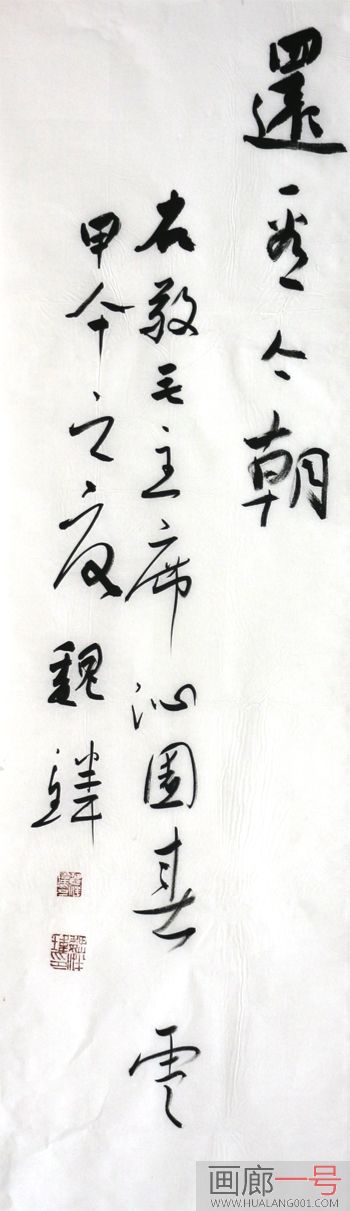 還看今朝
右敬毛主席沁園春 雪
甲午之夏 魏
画廊一号
WWW.HUALANG001.COM